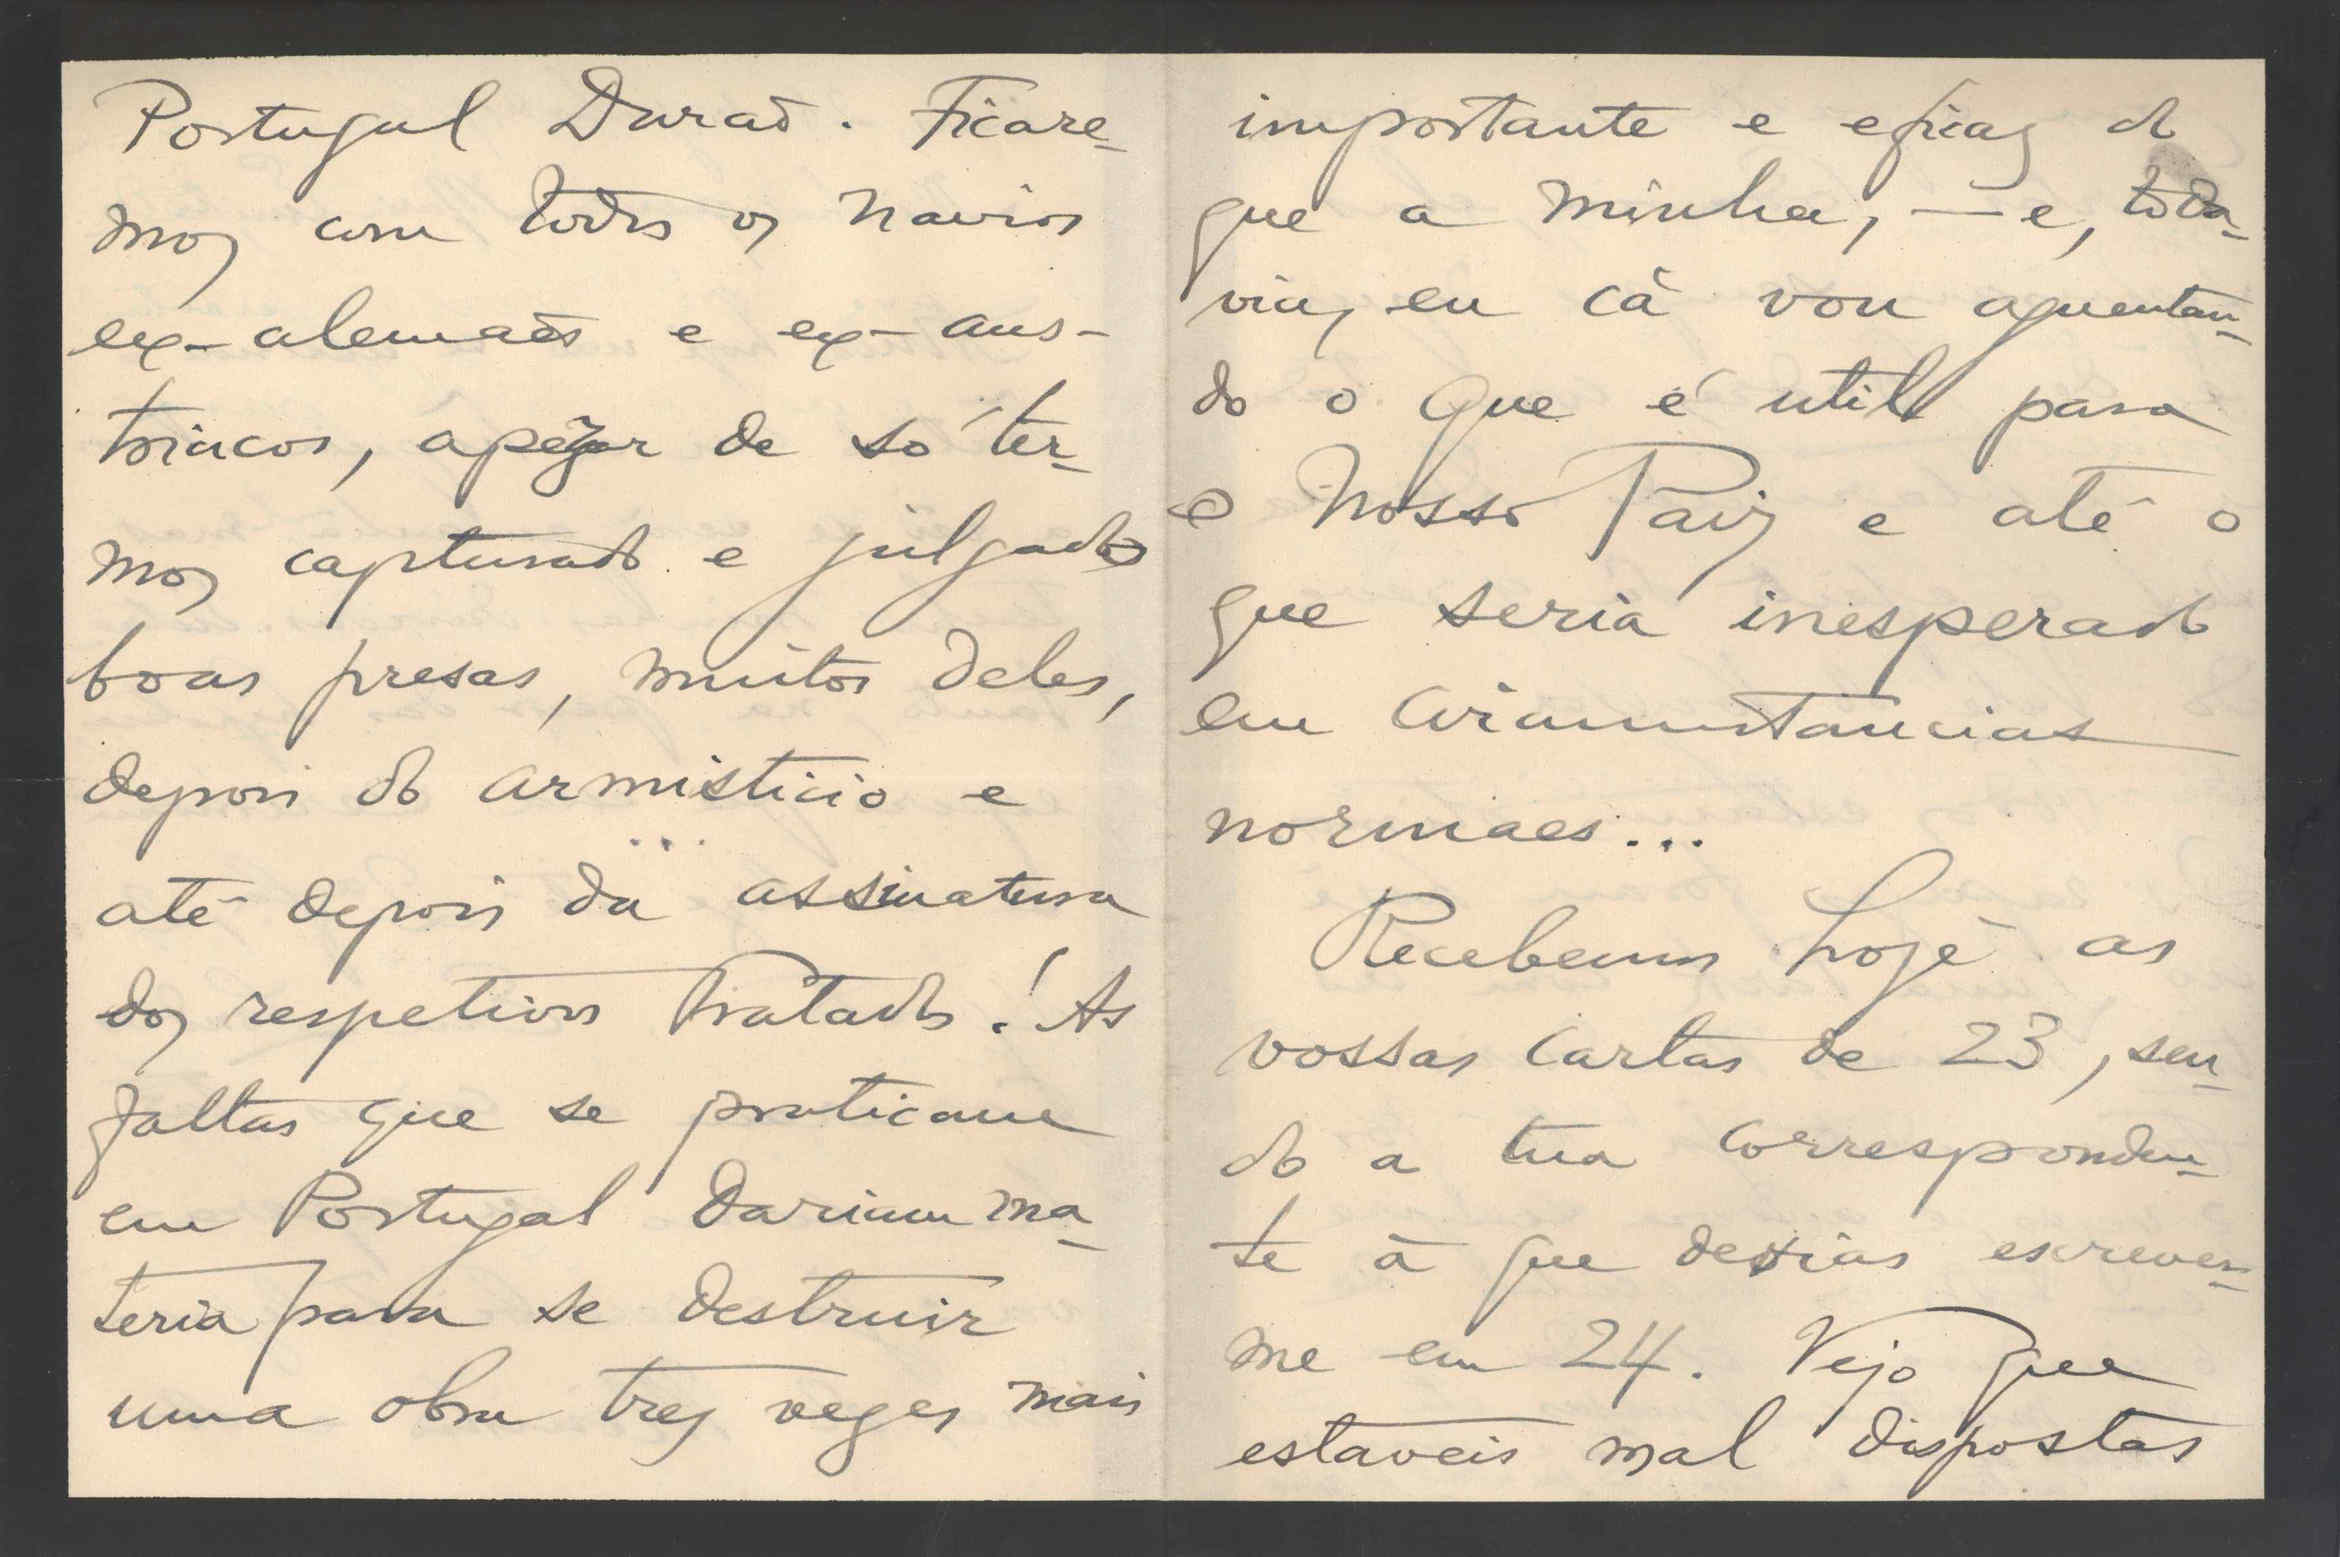 Portugal Durão. Ficare-
mos com todos os navios
ex-alemães e ex-aus-
triacos, apezar de só ter-
mos capturado e julgado
boas presas, muitos deles,
depois do armisticio e
até depois da... assinatura
dos respetivos Tratados! As
faltas que se praticam
em Portugal dariam ma-
teria para se destruir
uma obra tres vezes mais
importante e eficaz do
que a minha, — e, toda-
via, eu cá vou aguentan-
do o que é util para
o Nosso Paiz e até o
que seria inesperado
em circunstancias
normaes...
Recebemos hoje as
vossas cartas de 23, sen-
do a tua corresponden-
te á que devias escrever-
me em 24. Vejo que
estaveis mal dispostas